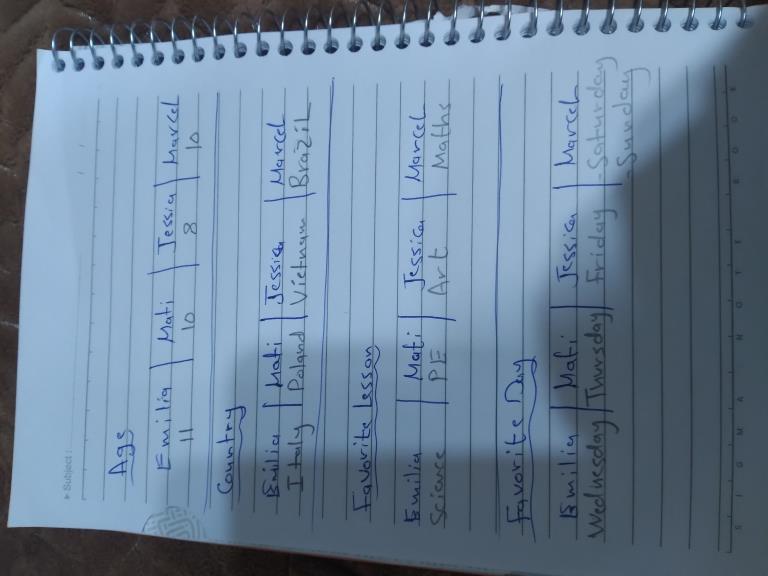 Subject:
Age
Emilia | Mati | Jessica | Marcel
11 10 8 10
Country
Emilia | Mati | Jessica | Marcel
Italy | Poland | Vietnam | Brazil
Favorite Lesson
Emilia | Mati | Jessica | Marcel
Science | PE | Art | Maths
Favorite Day
Emilia | Mati | Jessica | Marcel
Wednesday | Thursday | Friday | - Saturday
- Sunday
SIGMA NOTEBOOK